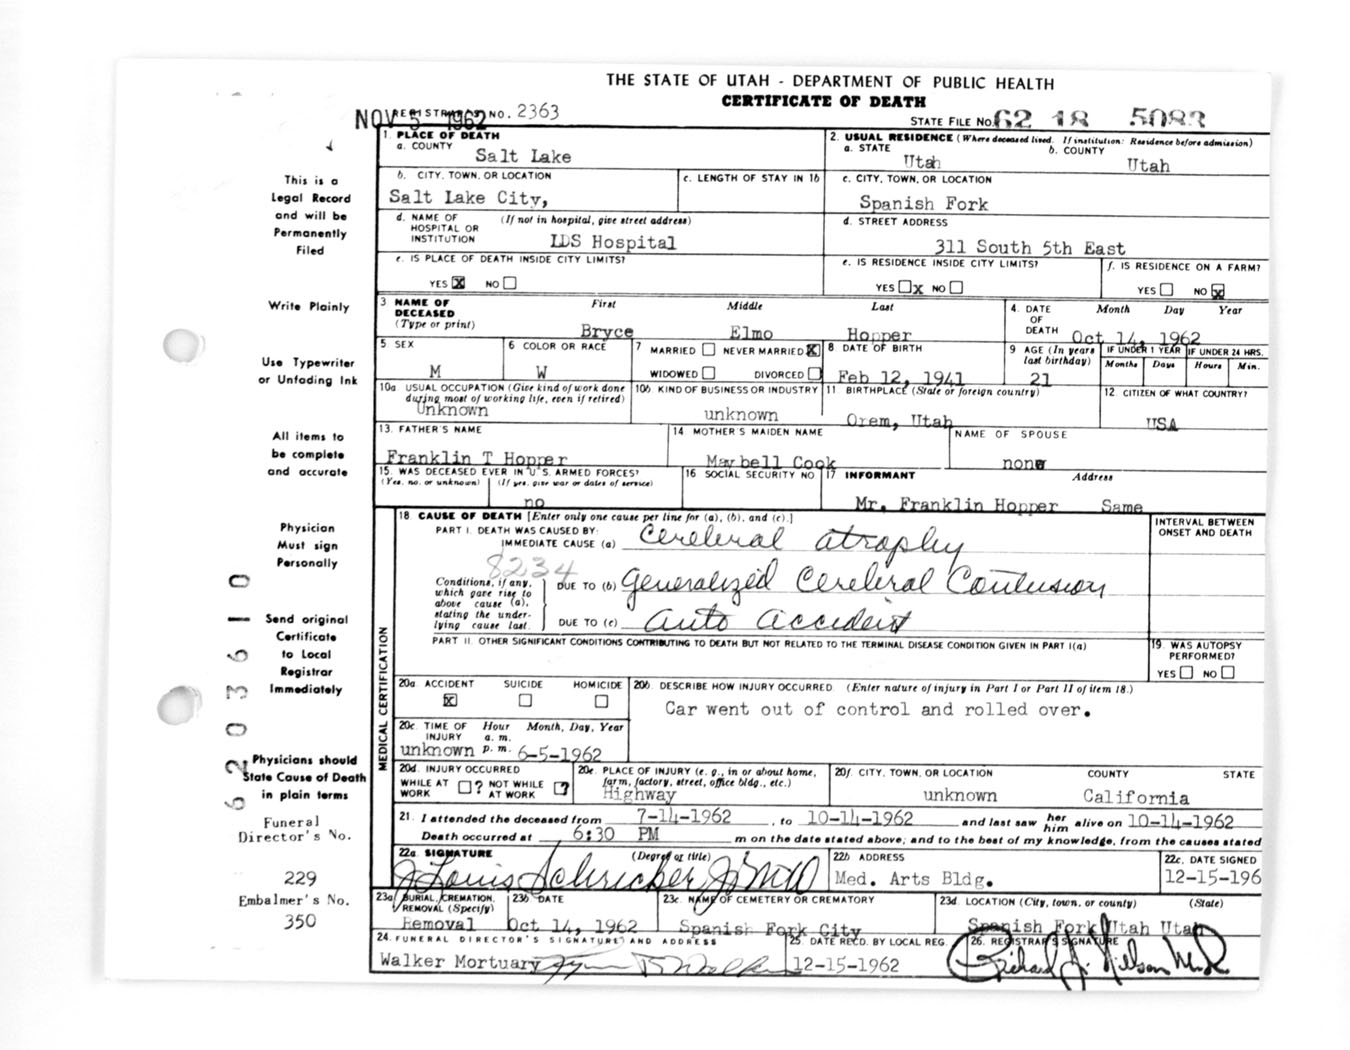 THE STATE OF UTAH - DEPARTMENT OF PUBLIC HEALTH
CERTIFICATE OF DEATH
REGISTRAR'S NO. 2363
NOV 5 1962
STATE FILE NO. 62 18 5083
1. PLACE OF DEATH
a. COUNTY
Salt Lake
2. USUAL RESIDENCE (Where deceased lived. If institution: Residence before admission)
a. STATE b. COUNTY
Utah Utah
b. CITY, TOWN, OR LOCATION
Salt Lake City,
c. LENGTH OF STAY IN 1b
c. CITY, TOWN, OR LOCATION
Spanish Fork
d. NAME OF HOSPITAL OR INSTITUTION (If not in hospital, give street address)
LDS Hospital
d. STREET ADDRESS
311 South 5th East
e. IS PLACE OF DEATH INSIDE CITY LIMITS?
YES X NO
e. IS RESIDENCE INSIDE CITY LIMITS?
YES x NO
f. IS RESIDENCE ON A FARM?
YES NO X
3 NAME OF DECEASED (Type or print)
First Middle Last
Bryce Elmo Hopper
4. DATE OF DEATH
Month Day Year
Oct 14, 1962
5 SEX
M
6 COLOR OR RACE
W
7 MARRIED NEVER MARRIED X
WIDOWED DIVORCED
8 DATE OF BIRTH
Feb 12, 1941
9 AGE (In years last birthday)
21
IF UNDER 1 YEAR
Months Days
IF UNDER 24 HRS.
Hours Min.
10a USUAL OCCUPATION (Give kind of work done during most of working life, even if retired)
Unknown
10b. KIND OF BUSINESS OR INDUSTRY
unknown
11 BIRTHPLACE (State or foreign country)
Orem, Utah
12. CITIZEN OF WHAT COUNTRY?
USA
13. FATHER'S NAME
Franklin T Hopper
14 MOTHER'S MAIDEN NAME
Maybell Cook
NAME OF SPOUSE
none
15. WAS DECEASED EVER IN U.S. ARMED FORCES?
(Yes, no, or unknown) (If yes, give war or dates of service)
no
16 SOCIAL SECURITY NO
17 INFORMANT Address
Mr. Franklin Hopper Same
18. CAUSE OF DEATH [Enter only one cause per line for (a), (b), and (c).]
PART I. DEATH WAS CAUSED BY:
IMMEDIATE CAUSE (a) Cerebral atrophy
8234
Conditions, if any, which gave rise to above cause (a), stating the underlying cause last.
DUE TO (b) Generalized Cerebral Contusion
DUE TO (c) Auto Accident
INTERVAL BETWEEN ONSET AND DEATH
PART II. OTHER SIGNIFICANT CONDITIONS CONTRIBUTING TO DEATH BUT NOT RELATED TO THE TERMINAL DISEASE CONDITION GIVEN IN PART I(a)
19. WAS AUTOPSY PERFORMED?
YES NO
MEDICAL CERTIFICATION
20a. ACCIDENT SUICIDE HOMICIDE
X
20b. DESCRIBE HOW INJURY OCCURRED. (Enter nature of injury in Part I or Part II of item 18.)
Car went out of control and rolled over.
20c. TIME OF INJURY Hour a. m. p. m. Month, Day, Year
unknown 6-5-1962
20d. INJURY OCCURRED
WHILE AT WORK ? NOT WHILE AT WORK ?
20e. PLACE OF INJURY (e. g., in or about home, farm, factory, street, office bldg., etc.)
Highway
20f. CITY, TOWN, OR LOCATION COUNTY STATE
unknown California
21. I attended the deceased from 7-14-1962, to 10-14-1962 and last saw her him alive on 10-14-1962
Death occurred at 6:30 PM m on the date stated above; and to the best of my knowledge, from the causes stated
22a. SIGNATURE (Degree or title)
J Louis Schricker Jr MD
22b ADDRESS
Med. Arts Bldg.
22c. DATE SIGNED
12-15-196
23a BURIAL, CREMATION, REMOVAL (Specify)
Removal
23b DATE
Oct 14, 1962
23c. NAME OF CEMETERY OR CREMATORY
Spanish Fork City
23d. LOCATION (City, town, or county) (State)
Spanish Fork Utah Utah
24. FUNERAL DIRECTOR'S SIGNATURE AND ADDRESS
Walker Mortuary
25. DATE RECD. BY LOCAL REG.
12-15-1962
26. REGISTRAR'S SIGNATURE
This is a
Legal Record
and will be
Permanently
Filed
Write Plainly
Use Typewriter
or Unfading Ink
All items to
be complete
and accurate
Physician
Must sign
Personally
Send original
Certificate
to Local
Registrar
Immediately
Physicians should
State Cause of Death
in plain terms
Funeral
Director's No.
229
Embalmer's No.
350